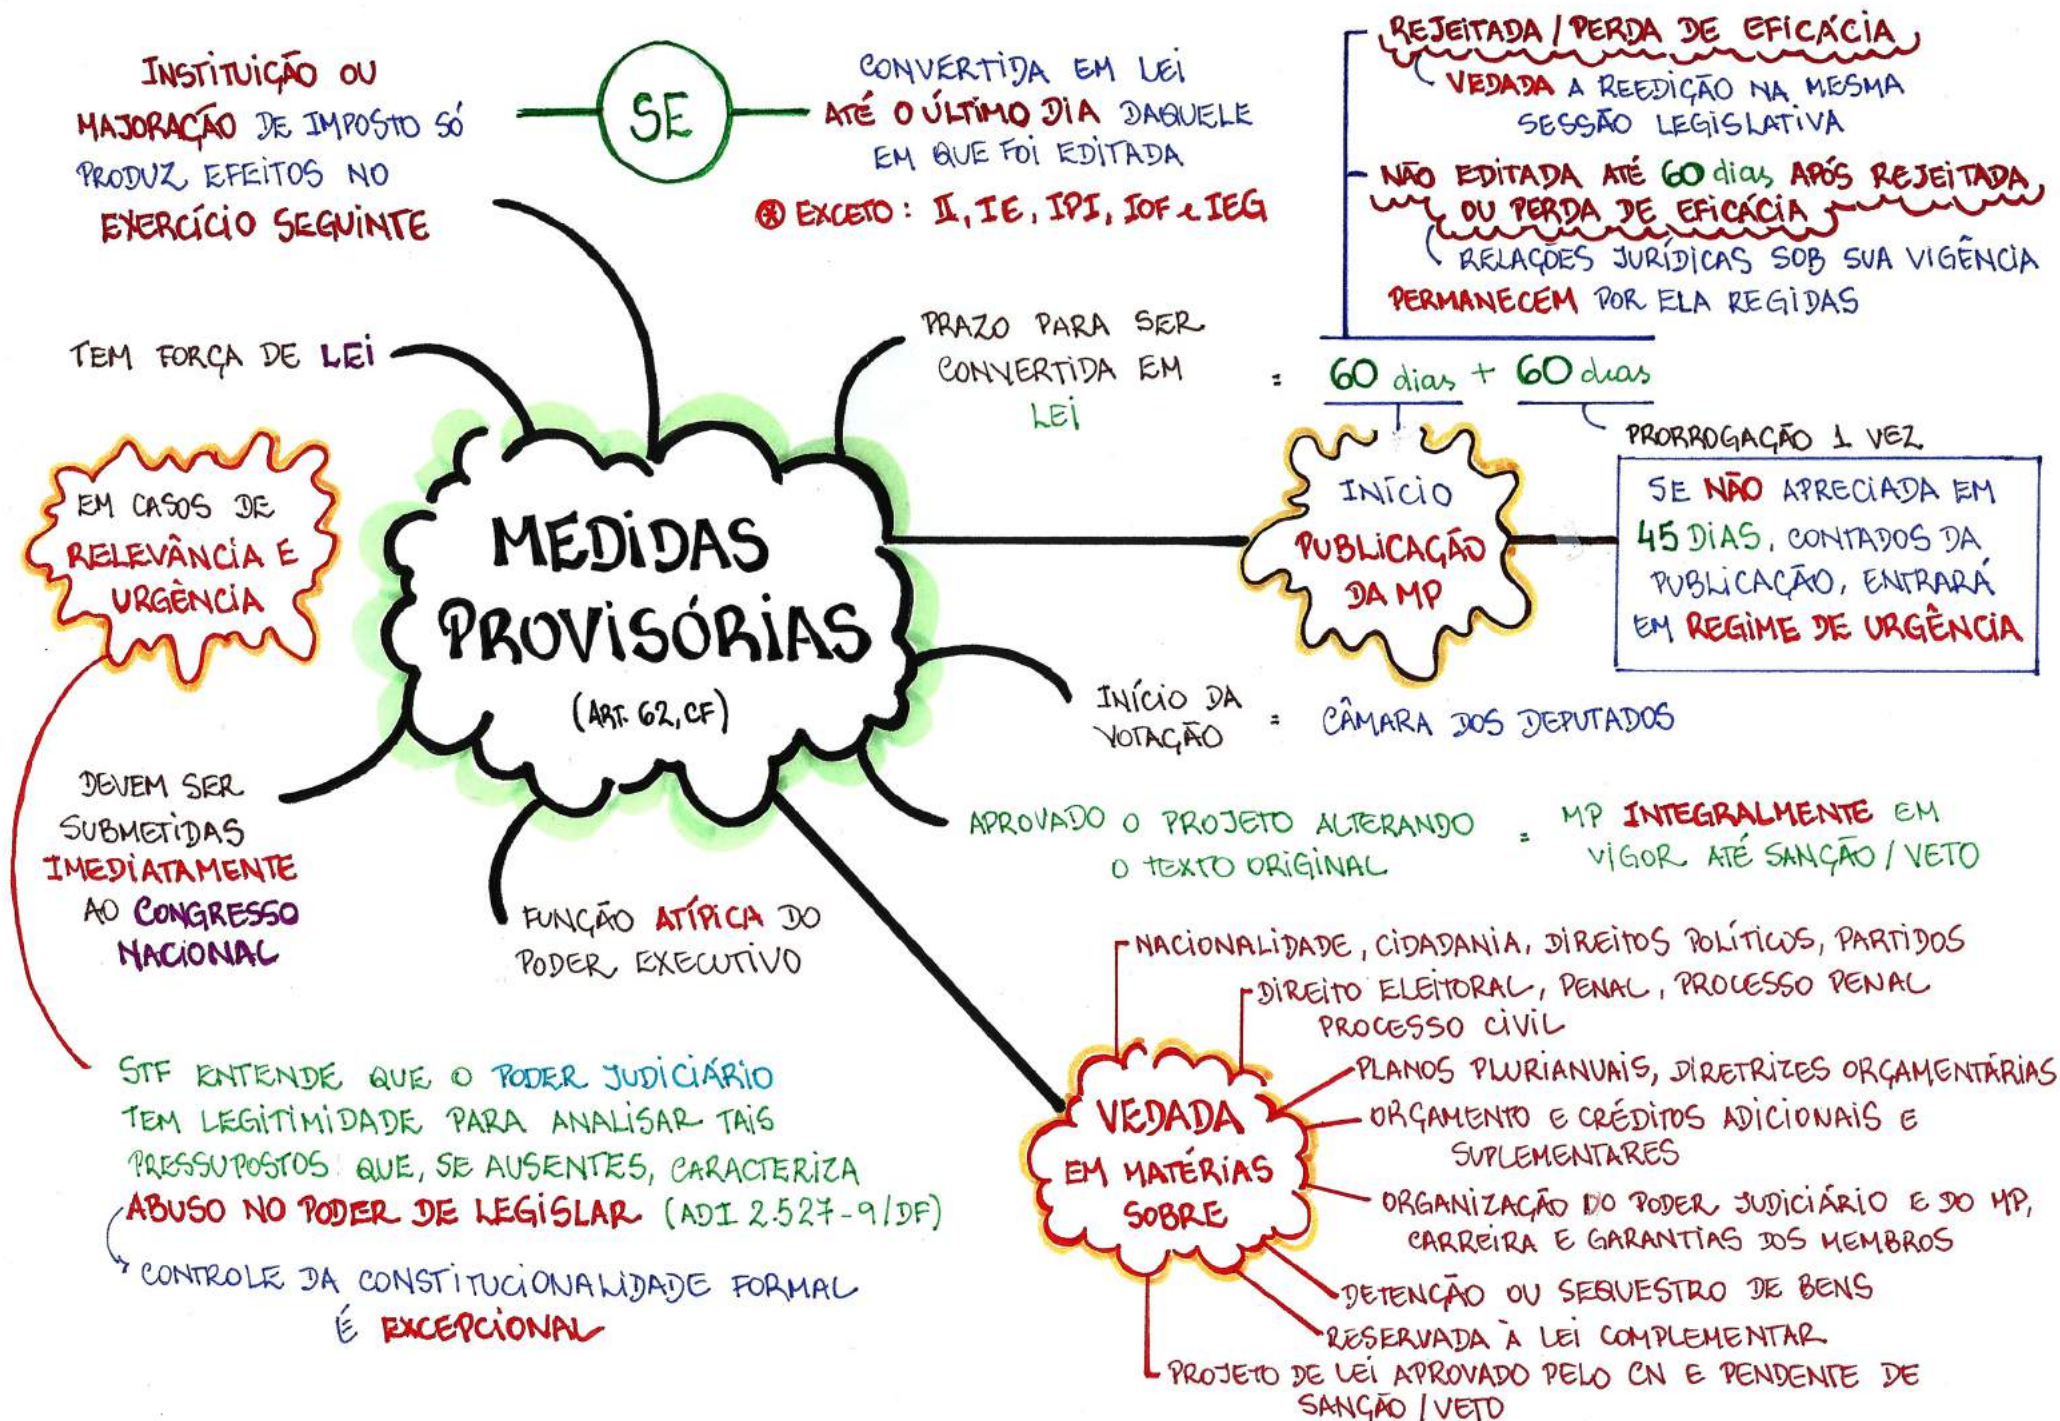 INSTITUIÇÃO OU
MAJORAÇÃO DE IMPOSTO SÓ
PRODUZ EFEITOS NO
EXERCÍCIO SEGUINTE
SE
CONVERTIDA EM LEI
ATÉ O ÚLTIMO DIA DAQUELE
EM QUE FOI EDITADA
* EXCETO: II, IE, IPI, IOF e IEG
REJEITADA / PERDA DE EFICÁCIA
VEDADA A REEDIÇÃO NA MESMA
SESSÃO LEGISLATIVA
NÃO EDITADA ATÉ 60 dias APÓS REJEITADA
OU PERDA DE EFICÁCIA
RELAÇÕES JURÍDICAS SOB SUA VIGÊNCIA
PERMANECEM POR ELA REGIDAS
TEM FORÇA DE LEI
PRAZO PARA SER
CONVERTIDA EM
LEI
= 60 dias + 60 dias
PRORROGAÇÃO 1 VEZ
INÍCIO
PUBLICAÇÃO
DA MP
SE NÃO APRECIADA EM
45 DIAS, CONTADOS DA
PUBLICAÇÃO, ENTRARÁ
EM REGIME DE URGÊNCIA
EM CASOS DE
RELEVÂNCIA E
URGÊNCIA
MEDIDAS
PROVISÓRIAS
(ART. 62, CF)
INÍCIO DA
VOTAÇÃO
= CÂMARA DOS DEPUTADOS
DEVEM SER
SUBMETIDAS
IMEDIATAMENTE
AO CONGRESSO
NACIONAL
APROVADO O PROJETO ALTERANDO
O TEXTO ORIGINAL
= MP INTEGRALMENTE EM
VIGOR ATÉ SANÇÃO / VETO
FUNÇÃO ATÍPICA DO
PODER EXECUTIVO
STF ENTENDE QUE O PODER JUDICIÁRIO
TEM LEGITIMIDADE PARA ANALISAR TAIS
PRESSUPOSTOS QUE, SE AUSENTES, CARACTERIZA
ABUSO NO PODER DE LEGISLAR (ADI 2.527-9/DF)
CONTROLE DA CONSTITUCIONALIDADE FORMAL
É EXCEPCIONAL
VEDADA
EM MATÉRIAS
SOBRE
NACIONALIDADE, CIDADANIA, DIREITOS POLÍTICOS, PARTIDOS
DIREITO ELEITORAL, PENAL, PROCESSO PENAL
PROCESSO CIVIL
PLANOS PLURIANUAIS, DIRETRIZES ORÇAMENTÁRIAS
ORÇAMENTO E CRÉDITOS ADICIONAIS E
SUPLEMENTARES
ORGANIZAÇÃO DO PODER JUDICIÁRIO E DO MP,
CARREIRA E GARANTIAS DOS MEMBROS
DETENÇÃO OU SEQUESTRO DE BENS
RESERVADA À LEI COMPLEMENTAR
PROJETO DE LEI APROVADO PELO CN E PENDENTE DE
SANÇÃO / VETO